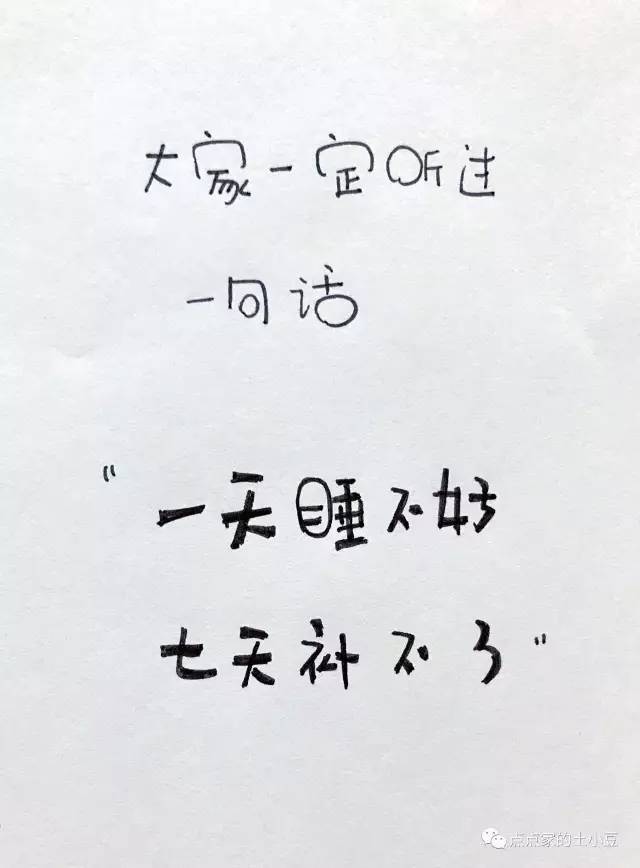 大家一定听过
一句话
“一天睡不好
七天补不了”
点点家的土小豆